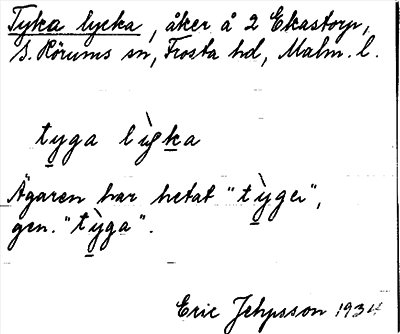 Tyka lycka, åker å 2 Ekastorp,
S. Rörums sn, Frosta hd, Malm. l.
tyga lỳka
Ägaren har hetat "tỳger",
gen. "tỳga".
Eric Jehpsson 1934